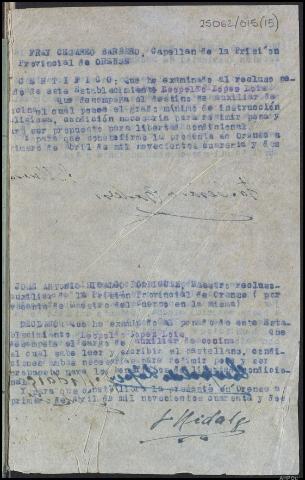 25062/015(15)
FRAY CESAREO BARBERO, Capellan de la Prision
Provincial de ORENSE
CERTIFICO, Que he examinado al recluso
de de este Establecimiento Leopoldo Lopez Lois
que desempeña el destino de auxiliar de
cocina el cual posee el grado mínimo de instrucción
condición necesaria para redimir pena y
ser propuesto para libertad condicional.
Y para que conste firmo la presente en Orense a
primero de Abril de mil novecientos cuarenta y dos
JOSE ANTONIO HIDALGO RODRIGUEZ, Maestro recluso
auxiliar de la Prisión Provincial de Orense ( por
vacante de Maestro del Cuerpo en la misma)
DECLARO: que he examinado al penado de este Esta-
blecimiento Leopoldo Lopez Lois que
desempeña el cargo de auxiliar de cocina
al cual sabe leer y escribir el castellano, condi-
ciones ambas necesarias para redimir pena y ser
propuesto para los beneficios de condicio-
nal
Y para que conste firmo la presente en Orense a
primero de Abril de mil novecientos cuarenta y dos
J Hidalgo